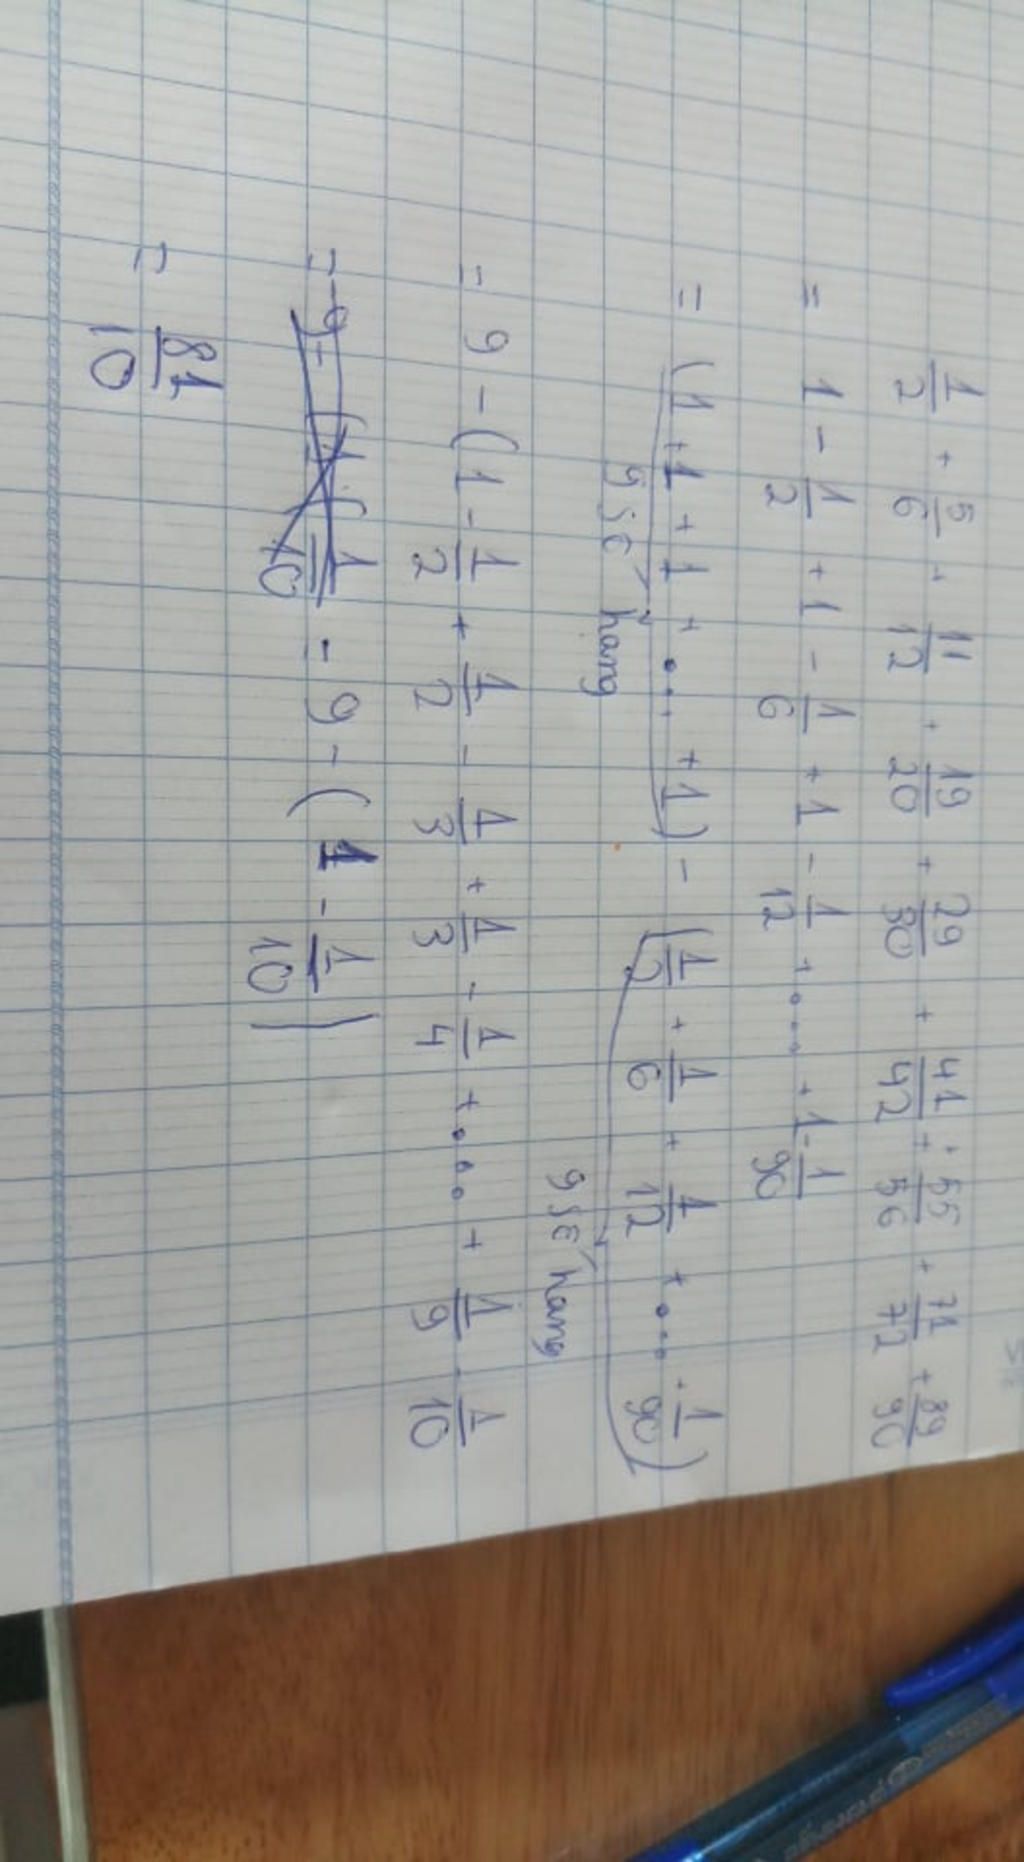 1/2 + 5/6 + 11/12 + 19/20 + 29/30 + 41/42 + 55/56 + 71/72 + 89/90
= 1 - 1/2 + 1 - 1/6 + 1 - 1/12 + .... + 1 - 1/90
= (1 + 1 + 1 + .... + 1) - (1/2 + 1/6 + 1/12 + .... + 1/90)
9 số hạng 9 số hạng
= 9 - (1 - 1/2 + 1/2 - 1/3 + 1/3 - 1/4 + .... + 1/9 - 1/10
= = 9 - (1 - 1/10)
= 81/10